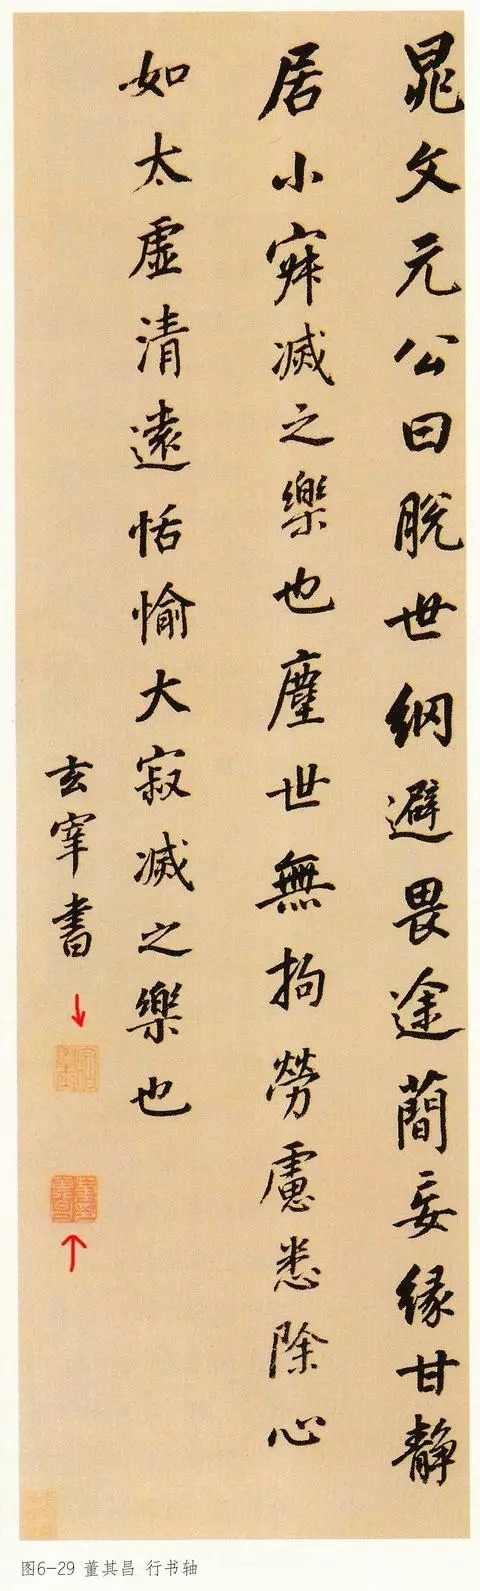 晁文元公曰脫世網避畏途簡妄緣甘静
居小寂滅之樂也塵世無拘勞慮悉除心
如太虛清遠恬愉大寂滅之樂也
玄宰書
图6-29 董其昌 行书轴